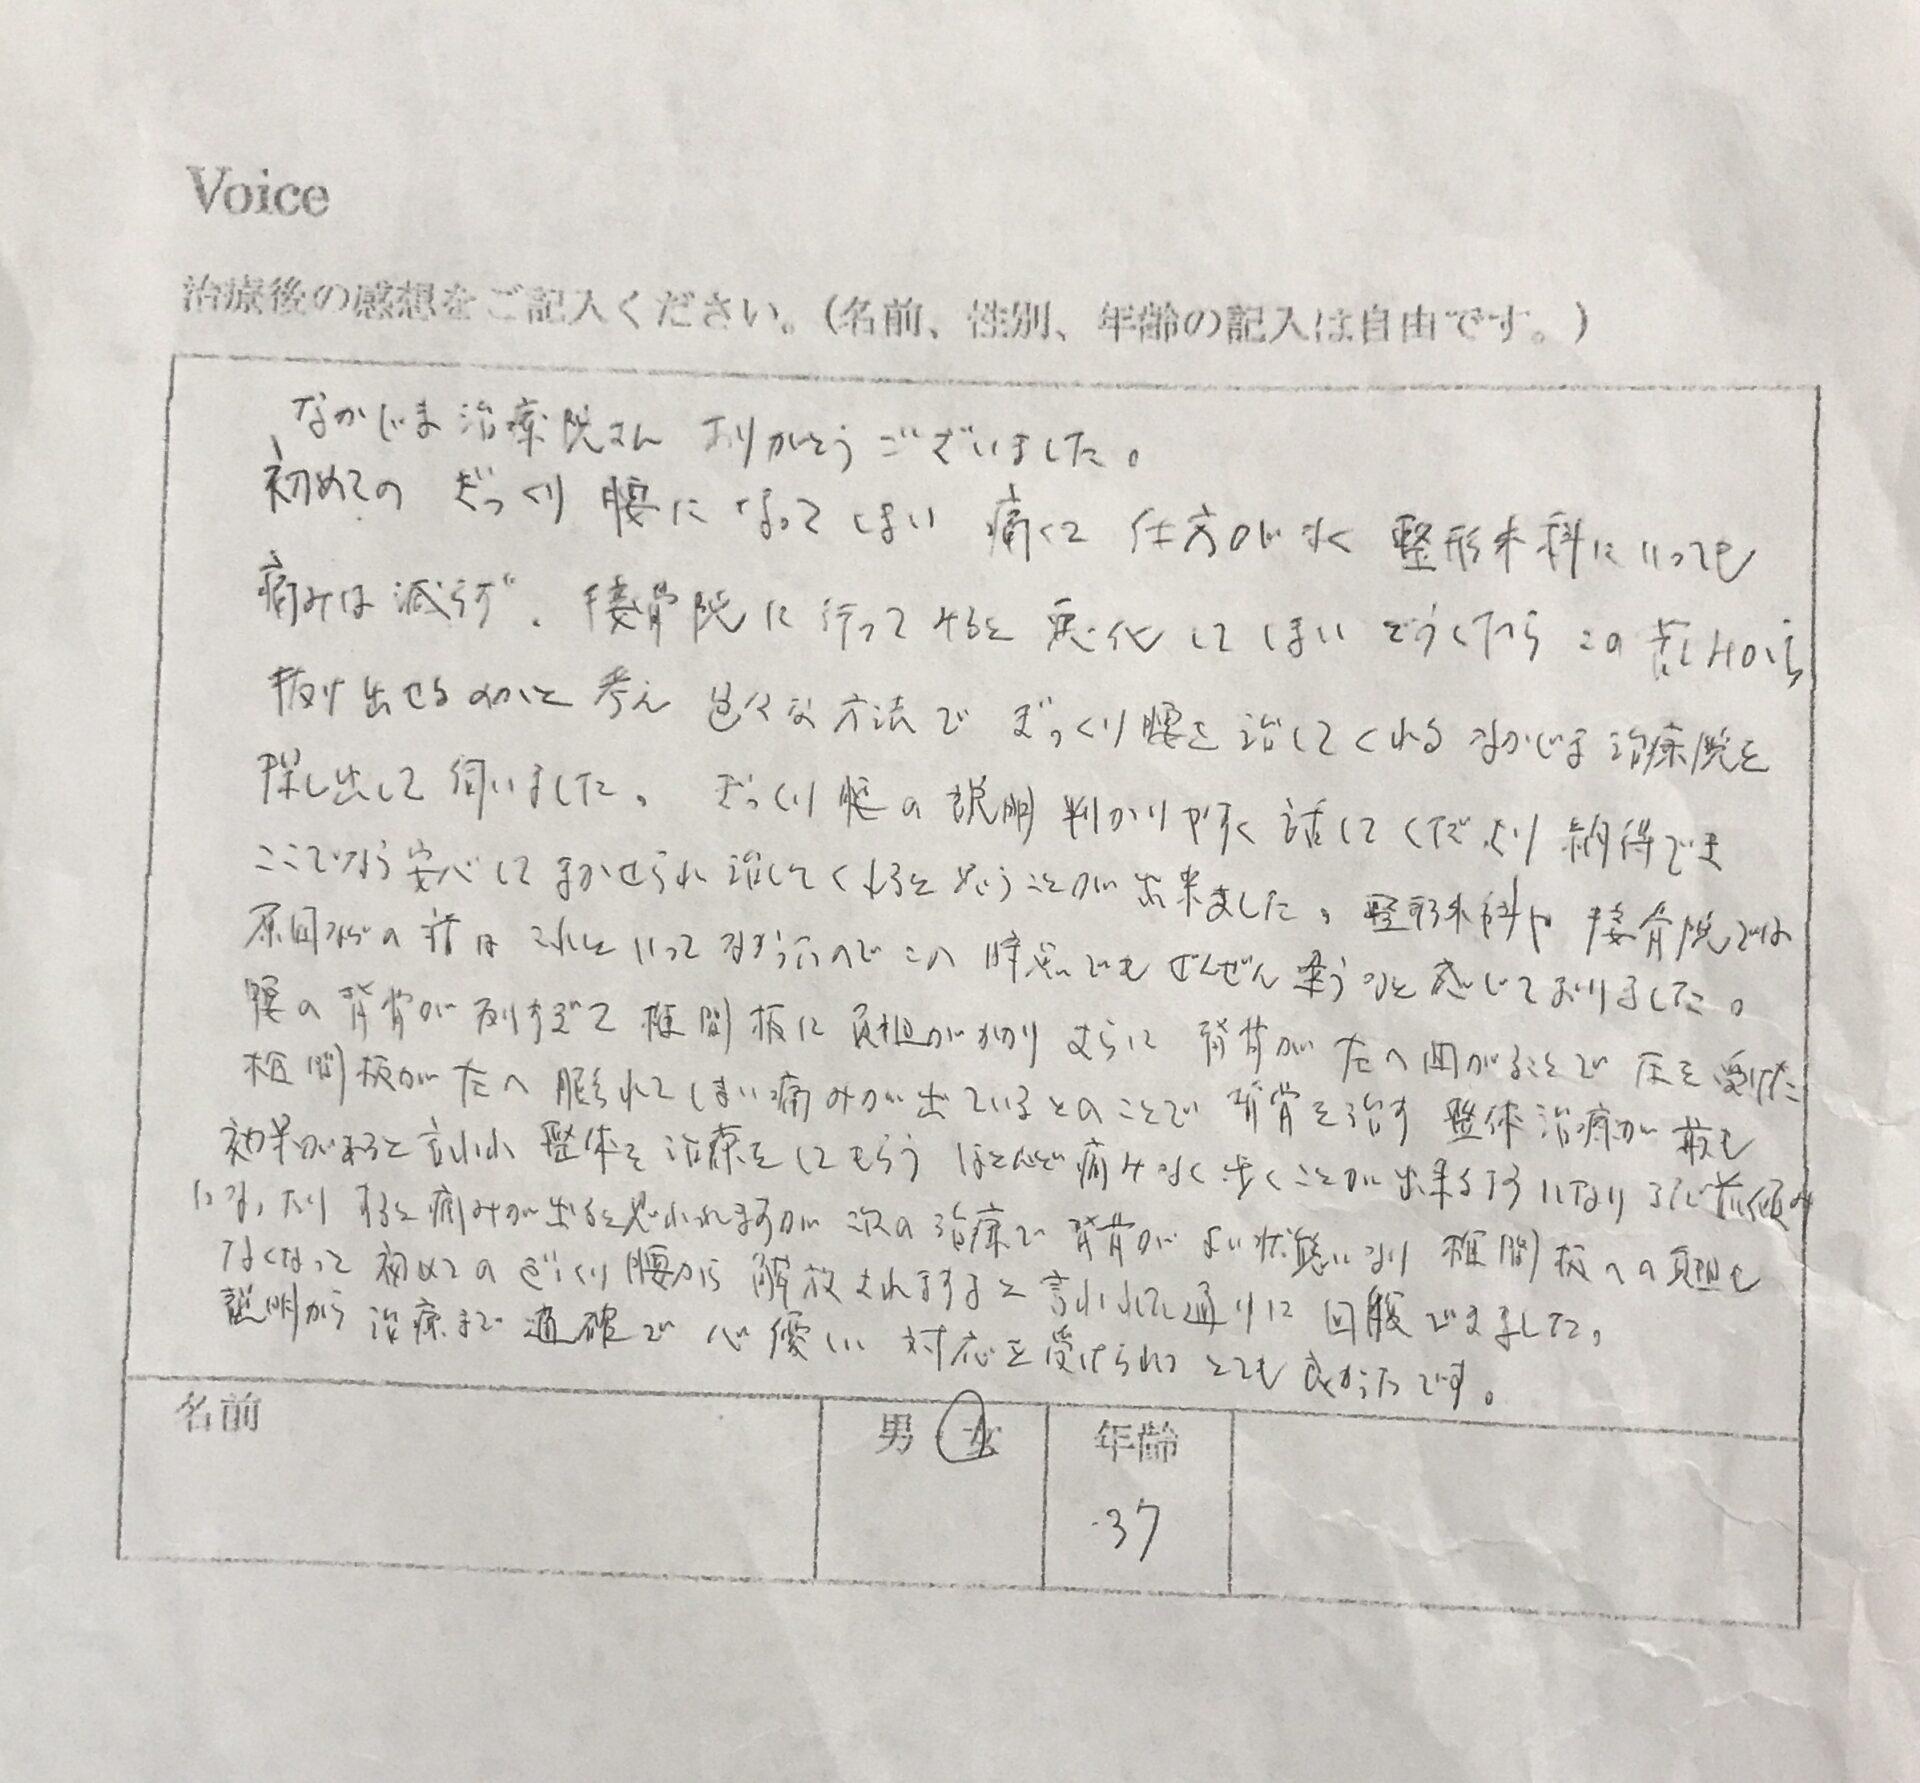 Voice
治療後の感想をご記入ください。(名前、性別、年齢の記入は自由です。)
なかじま治療院さん ありがとうございました。
初めての ぎっくり腰になってしまい 痛くて 仕方がなく 整形外科にいっても
痛みは減らず、接骨院に行ってみると 悪化してしまい どうしたら この苦しみから
抜け出せるのかと 考え 色々な方法で ぎっくり腰を 治してくれる なかじま治療院を
探し出して 伺いました。 ぎっくり腰の説明 判かりやすく 話してくださり 納得でき
ここでなら安心して まかせられ 治してくれると思うことが 出来ました。整形外科や 接骨院では
原因などの話は これといって なかったので この 時点でも ぜんぜん 違うなと 感じておりました。
腰の背骨が 反りすぎて 椎間板に 負担がかかり さらに 背骨が 左へ曲がることで 圧を受けた
椎間板が 左へ 膨られてしまい 痛みが出ているとのことで 背骨を治す 整体治療が 最も
効果があると 言われ 整体を 治療をしてもらう ほとんど痛みなく 歩くことが出来るようになり 前傾み
になったり すると痛みが出ると思われますが 次の治療で 背骨が よい状態になり 椎間板への負担も
なくなって 初めてのぎっくり腰から 解放されますよと 言われた通りに 回復できました。
説明から 治療まで 適確で 心優しい 対応を受けられて とても 良かったです。
名前
男 女 年齢
37